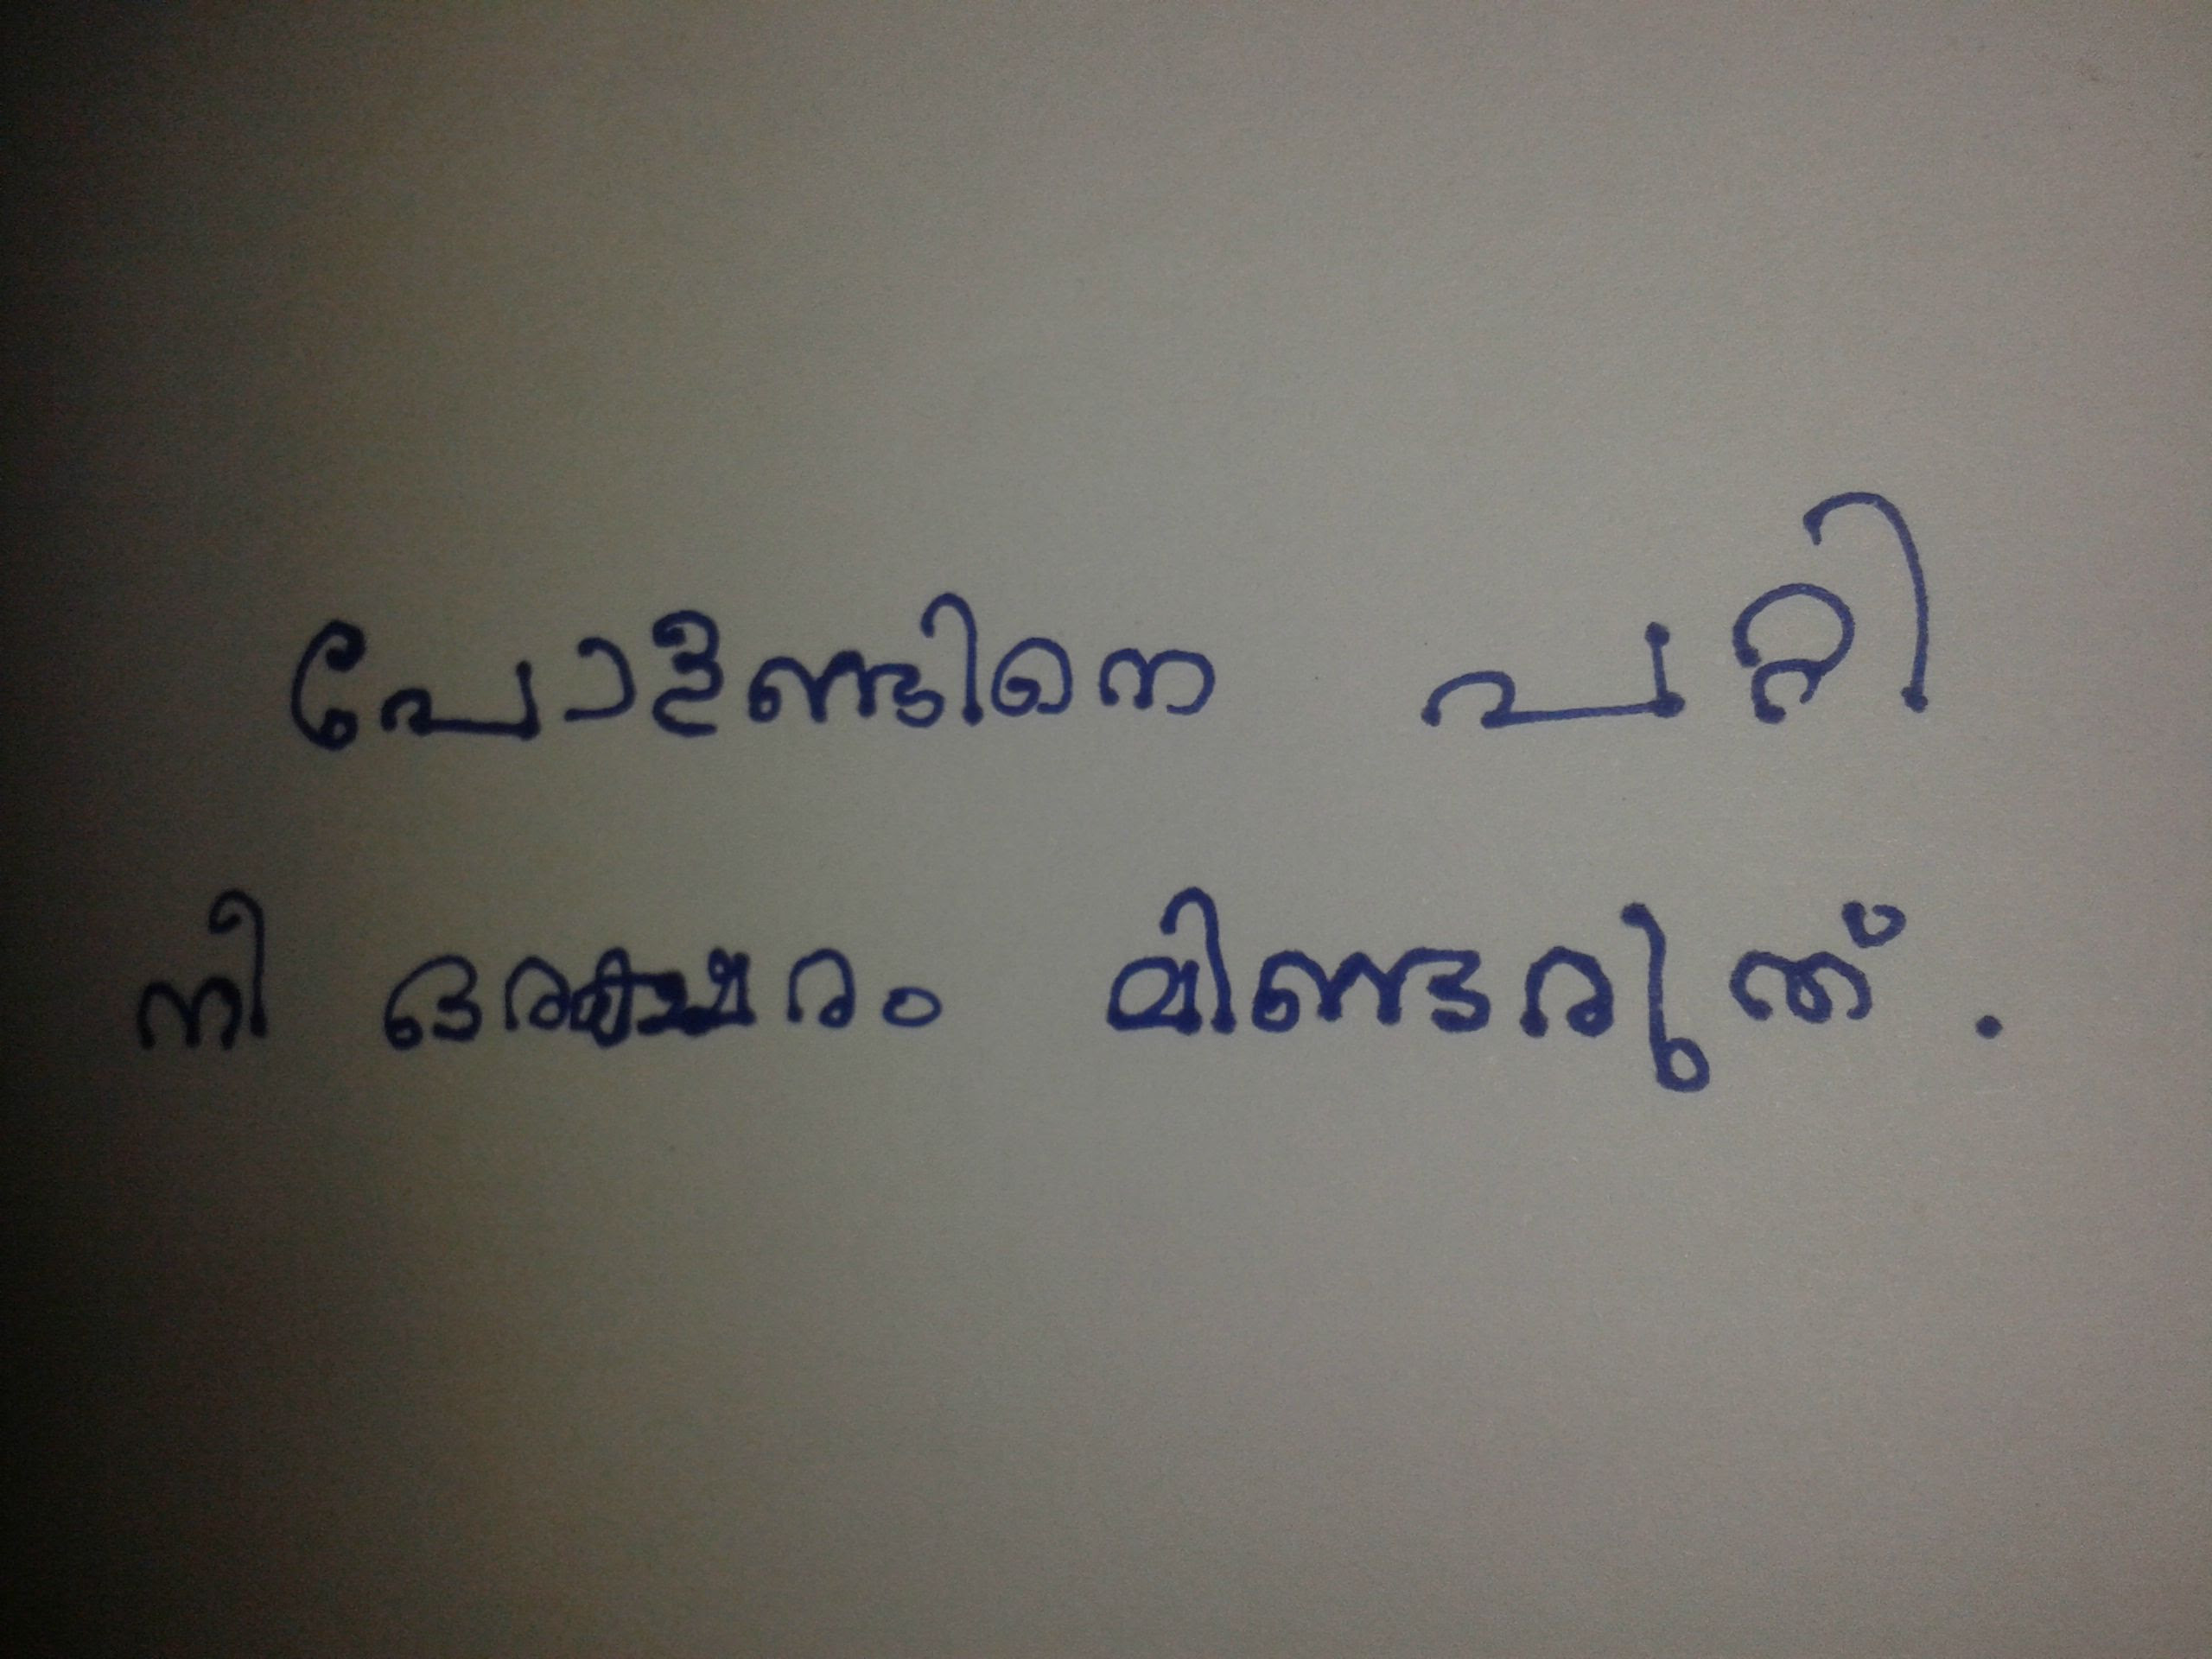 പോളണ്ടിനെ പറ്റി
നീ ഒരക്ഷരം മിണ്ടരുത്.